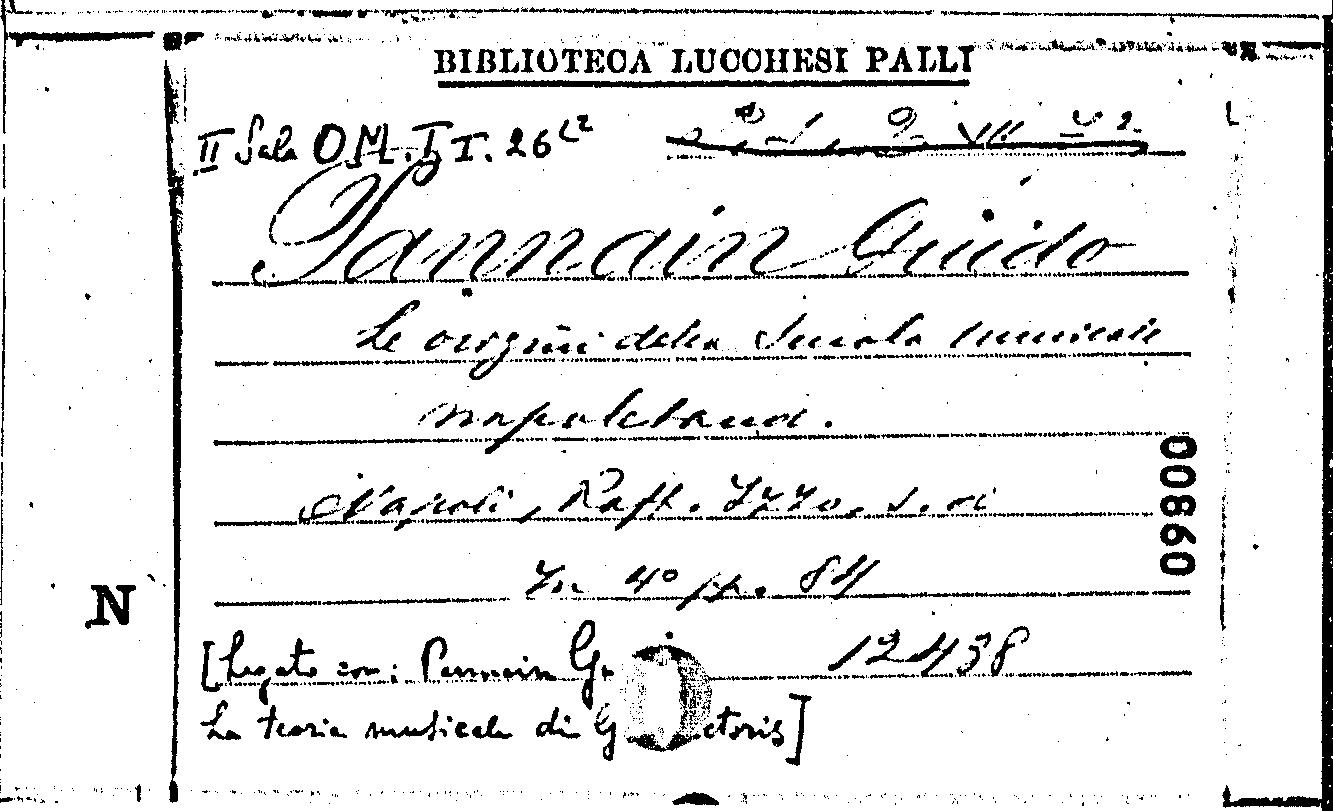 BIBLIOTECA LUCCHESI PALLI
II Sala O.M.I I. 26
Pannain Guido
Le origini della Scuola musicale
napoletana.
Napoli, Raff. Izzo, s. d
In 4° pp. 84
09800
N
[Legato con: Pannain G
12438
La teoria musicale di G ctoris]